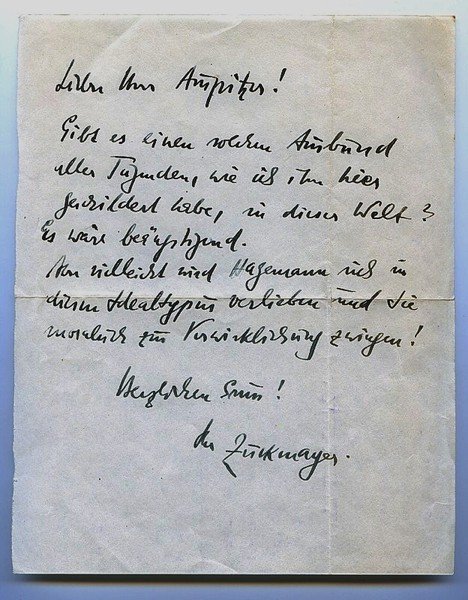 Lieber Herr Auspitzer!
Gibt es einen solchen Ausbund
aller Tugenden, wie ich ihn hier
geschildert habe, in dieser Welt?
Es wäre beängstigend.
Aber vielleicht wird Hagemann sich in
diesen Idealtypus verlieben und Sie
moralisch zur Verwirklichung zwingen!
Herzlichen Gruss!
Ihr Zuckmayer.